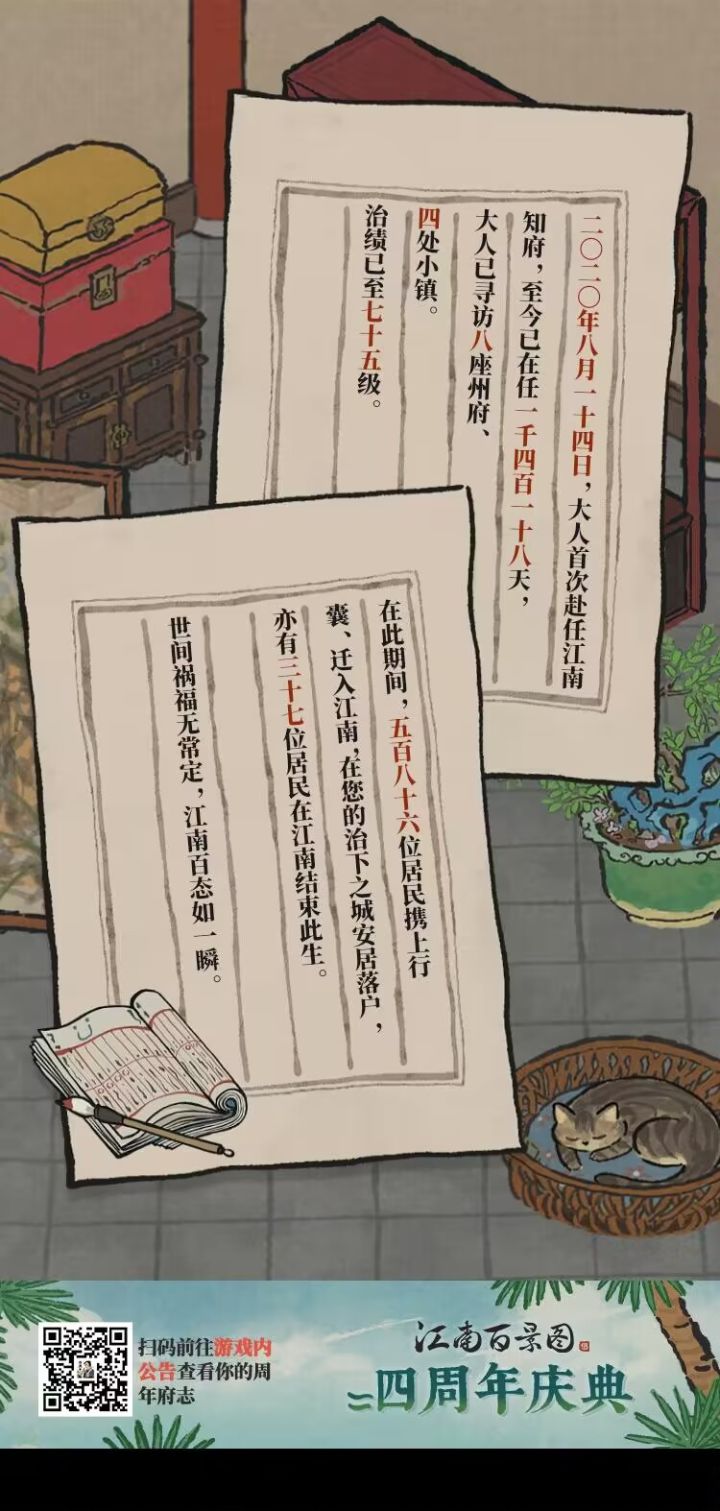 二〇二〇年八月一十四日，大人首次赴任江南
知府，至今已在任一千四百一十八天，
大人已寻访八座州府、
四处小镇。
治绩已至七十五级。
在此期间，五百八十六位居民携上行
囊、迁入江南，在您的治下之城安居落户，
亦有三十七位居民在江南结束此生。
世间祸福无常定，江南百态如一瞬。
扫码前往游戏内
公告查看你的周
年府志
江南百景图
四周年庆典